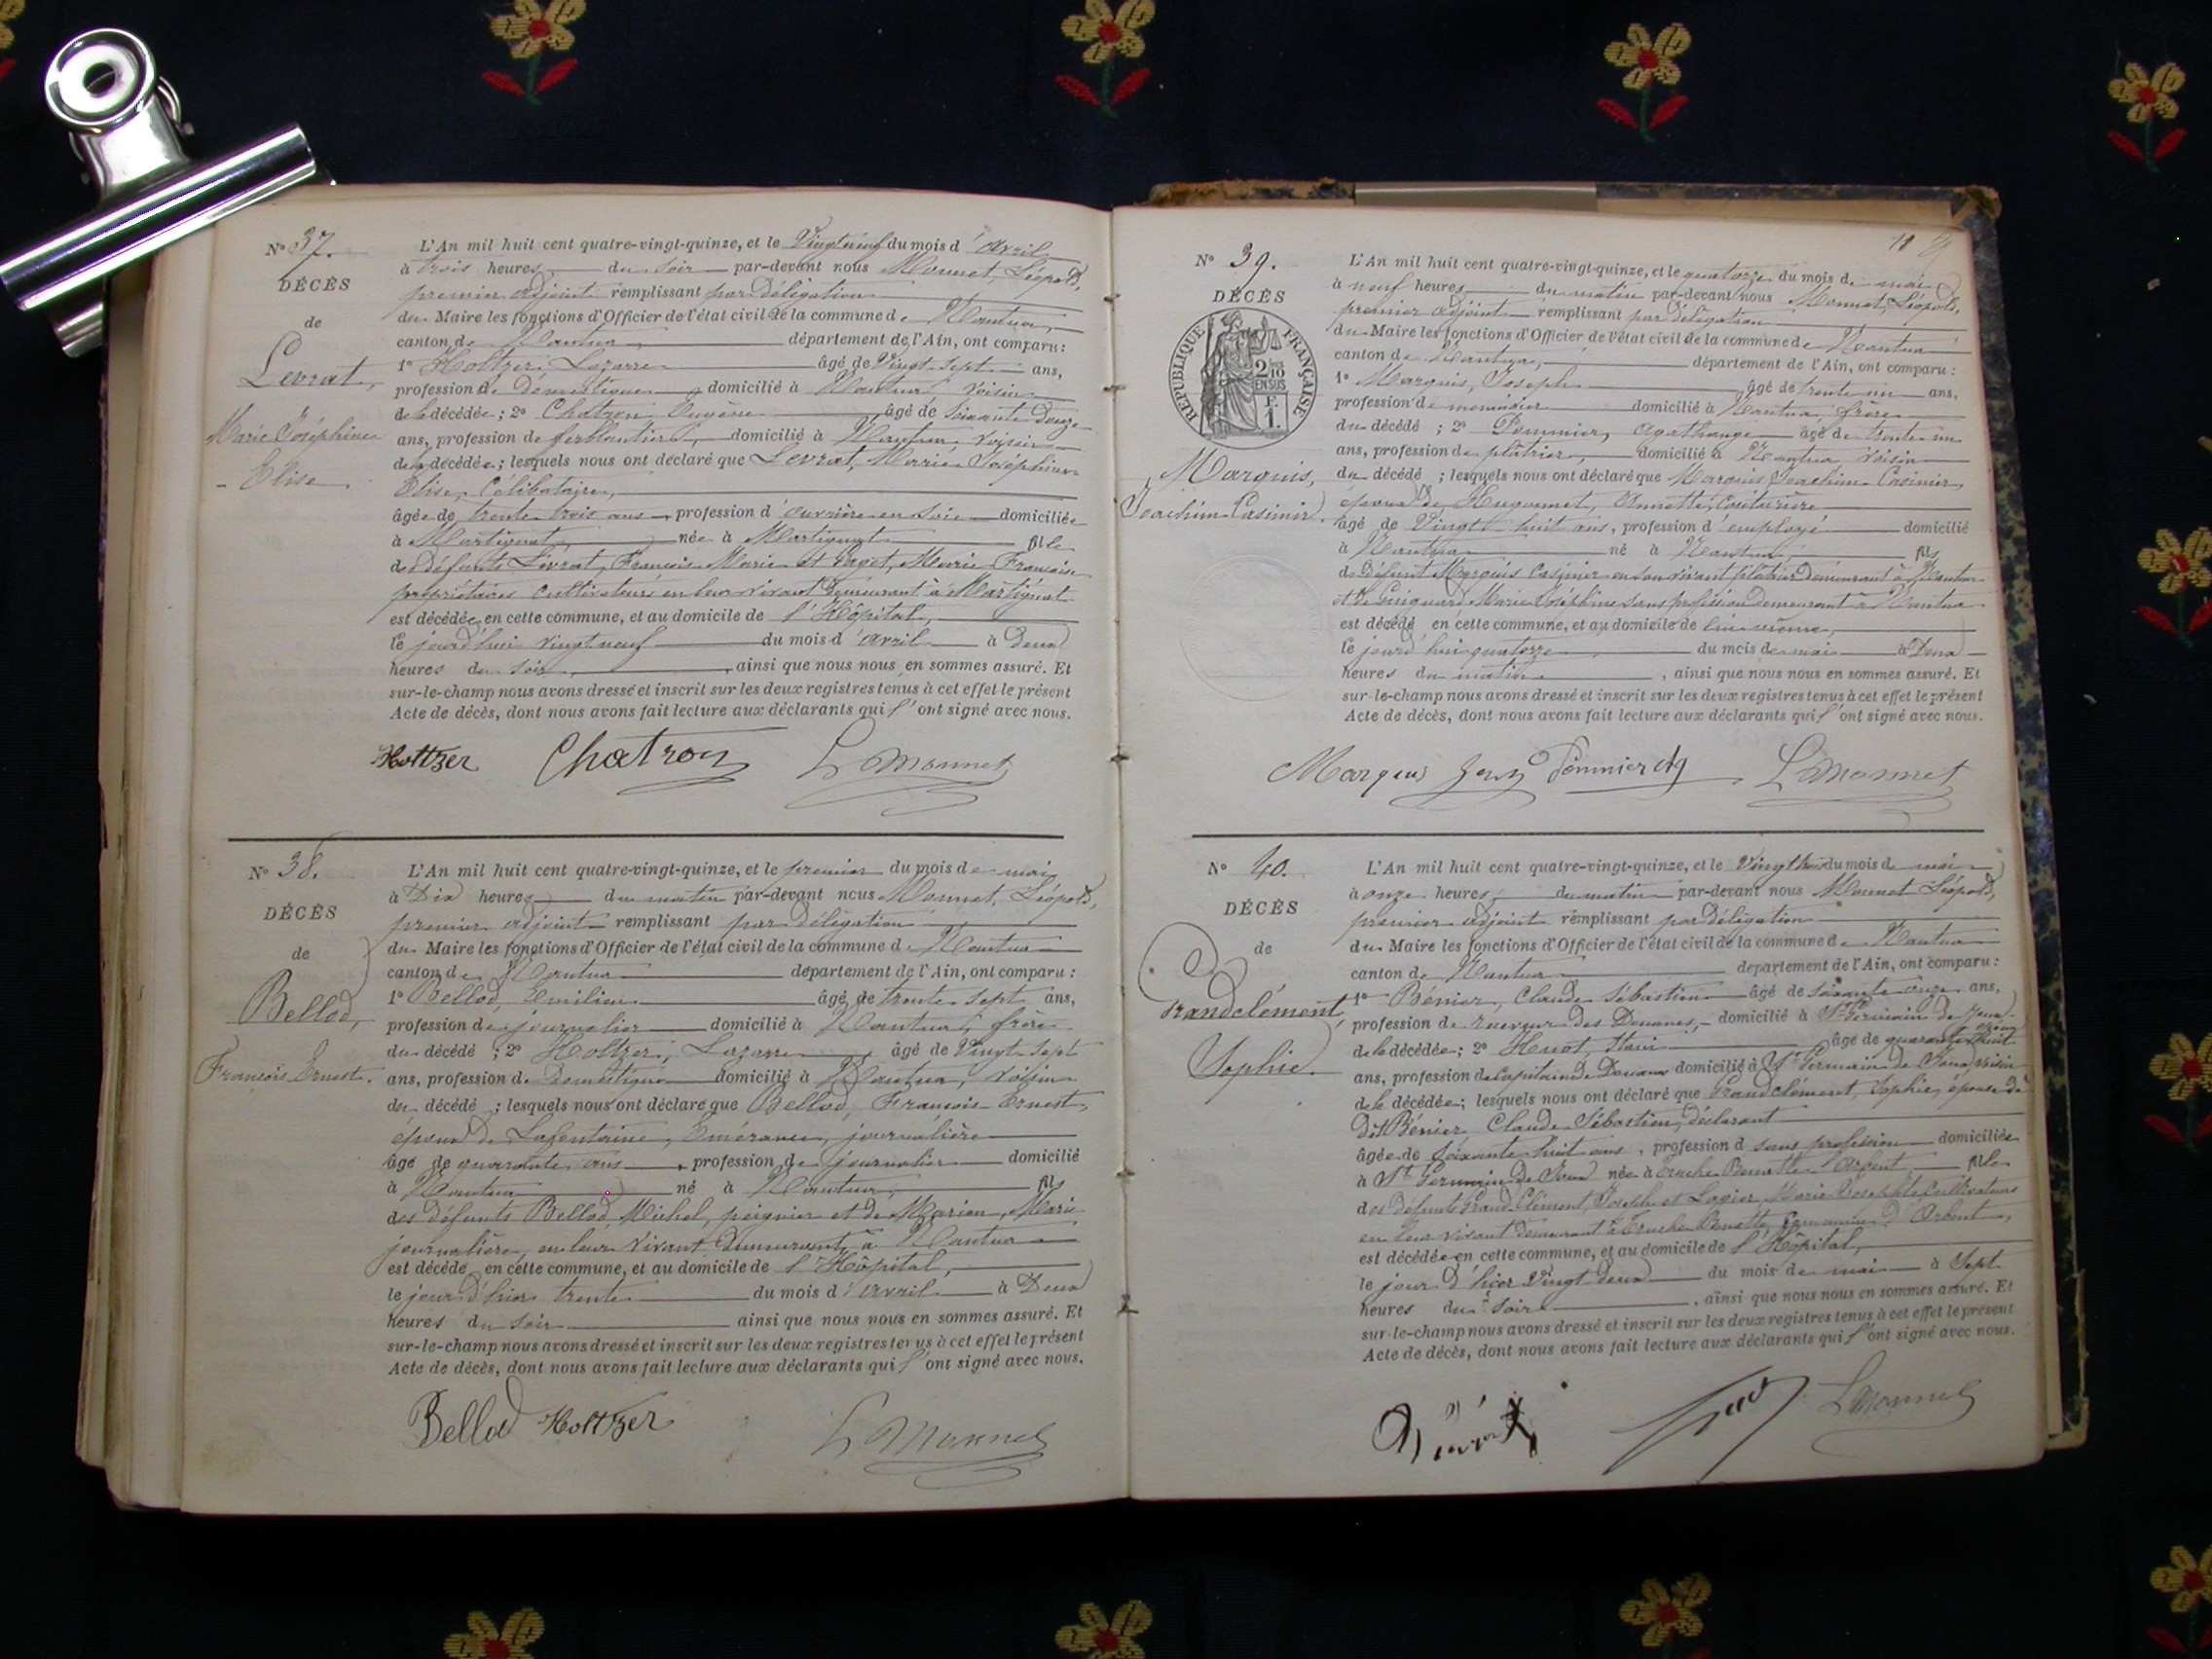 N° 37.
DÉCÈS
de
Levrat,
Marie Joséphine
Elise.
L'An mil huit cent quatre-vingt-quinze, et le Vingt neuf du mois d'Avril
à trois heures du soir par-devant nous Monnet, Léopold,
premier adjoint remplissant par délégation
du Maire les fonctions d'Officier de l'état civil de la commune de Nantua,
canton de Nantua département de l'Ain, ont comparu :
1° Holtzer, Lazarre âgé de Vingt sept ans,
profession de Domestique domicilié à Nantua voisin
de la décédée ; 2° Chatron Eugène âgé de soixante Douze
ans, profession de ferblantier, domicilié à Nantua voisin
de la décédée ; lesquels nous ont déclaré que Levrat, Marie Joséphine
Elise, Célibataire,
âgée de trente trois ans, profession d'ouvrière en soie domiciliée
à Martignat, née à Martignat fille
des défunts Levrat, François Marie et Marie Françoise
propriétaires cultivateurs en leur vivant demeurant à Martignat
est décédée en cette commune, et au domicile de l'Hôpital,
le jourd'hui vingt neuf du mois d'avril à Deux
heures du soir, ainsi que nous nous en sommes assuré. Et
sur-le-champ nous avons dressé et inscrit sur les deux registres tenus à cet effet le présent
Acte de décès, dont nous avons fait lecture aux déclarants qui l'ont signé avec nous.
Holtzer Chatron L Monnet
N° 38.
DÉCÈS
de
Bellod,
François Ernest.
L'An mil huit cent quatre-vingt-quinze, et le premier du mois de mai
à Dix heures du matin par-devant nous Monnet, Léopold,
premier adjoint remplissant par délégation
du Maire les fonctions d'Officier de l'état civil de la commune de Nantua
canton de Nantua département de l'Ain, ont comparu :
1° Bellod, Emilien âgé de trente sept ans,
profession de journalier domicilié à Nantua, frère
du décédé ; 2° Holtzer, Lazarre âgé de Vingt sept
ans, profession de Domestique domicilié à Nantua, voisin
du décédé ; lesquels nous ont déclaré que Bellod, François Ernest,
époux de Lafontaine, Emérance, journalière
âgé de quarante ans, profession de journalier domicilié
à Nantua né à Nantua, fils
des défunts Bellod, Michel, peignier et de Marion, Marie
journalière, en leur vivant demeurant à Nantua
est décédé en cette commune, et au domicile de l'Hôpital,
le jour d'hier trente du mois d'avril à Deux
heures du soir ainsi que nous nous en sommes assuré. Et
sur-le-champ nous avons dressé et inscrit sur les deux registres tenus à cet effet le présent
Acte de décès, dont nous avons fait lecture aux déclarants qui l'ont signé avec nous.
Bellod Holtzer L Monnet
N° 39.
DÉCÈS
RÉPUBLIQUE FRANÇAISE
2/10 EN SUS
F. 1.
Marquis,
Joachim Casimir.
L'An mil huit cent quatre-vingt-quinze, et le quatorze du mois de mai
à neuf heures du matin par-devant nous Monnet, Léopold,
premier adjoint remplissant par délégation
du Maire les fonctions d'Officier de l'état civil de la commune de Nantua
canton de Nantua, département de l'Ain, ont comparu :
1° Marquis, Joseph âgé de trente un ans,
profession de menuisier domicilié à Nantua, frère
du décédé ; 2° Pommier, Agathange âgé de trente un
ans, profession de plâtrier, domicilié à Nantua voisin
du décédé ; lesquels nous ont déclaré que Marquis Joachim Casimir
époux de Hugonnet, Annette, couturière
âgé de Vingt huit ans, profession d'employé domicilié
à Nantua né à Nantua, fils
de défunt Marquis Casimir en son vivant plâtrier demeurant à Nantua
et de Guignard Marie Joséphine sans profession demeurant à Nantua
est décédé en cette commune, et au domicile de lui-même,
le jourd'hui quatorze du mois de mai à Deux
heures du matin, ainsi que nous nous en sommes assuré. Et
sur-le-champ nous avons dressé et inscrit sur les deux registres tenus à cet effet le présent
Acte de décès, dont nous avons fait lecture aux déclarants qui l'ont signé avec nous.
Marquis Pommier L Monnet
N° 40.
DÉCÈS
de
Grandclément,
Sophie.
L'An mil huit cent quatre-vingt-quinze, et le Vingt trois du mois de mai
à onze heures du matin par-devant nous Monnet Léopold,
premier adjoint remplissant par délégation
du Maire les fonctions d'Officier de l'état civil de la commune de Nantua
canton de Nantua département de l'Ain, ont comparu :
1° Bénier, Claude Sébastien âgé de soixante onze ans,
profession de receveur des Douanes, domicilié à St Germain de Joux
de la décédée ; 2° Huot, âgé de quarante huit
ans, profession de Capitaine de Douanes domicilié à St Germain de Joux, voisin
de la décédée ; lesquels nous ont déclaré que Grandclément, Sophie, épouse de
dit Bénier Claude Sébastien, déclarant
âgée de soixante huit ans, profession d sans profession domiciliée
à St Germain de Joux née à fille
des défunts Grand Clément, Joseph et Marie Josephte Cultivateurs
en leur vivant demeurant à d'Arbent,
est décédée en cette commune, et au domicile de l'Hôpital,
le jour d'hier Vingt deux du mois de mai à Sept
heures du soir, ainsi que nous nous en sommes assuré. Et
sur-le-champ nous avons dressé et inscrit sur les deux registres tenus à cet effet le présent
Acte de décès, dont nous avons fait lecture aux déclarants qui l'ont signé avec nous.
L Monnet